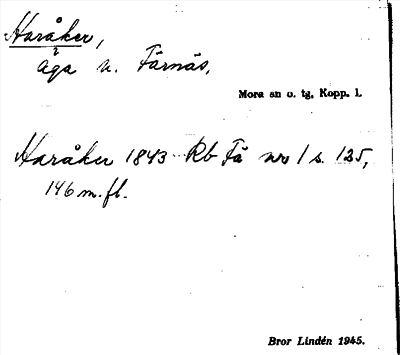 Haråker,
äga n. Färnäs,
Mora sn o. tg, Kopp. l.
Haråker 1843 Rb Fä nr 1 s. 125,
146 m. fl.
Bror Lindén 1945.